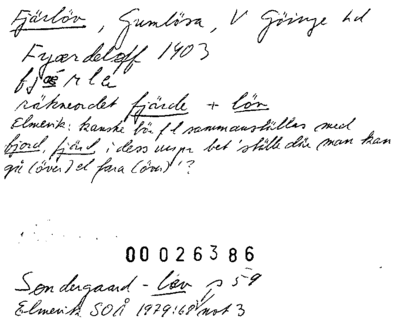 Fjärlöv, Gumlösa, V Göinge hd
Fyærdeløff 1903
fjærle
räkneordet fjärde + löv
Elmevik: kanske bör fl sammanställas med
fjord, fjärd i dess urspr bet 'ställe där man kan
gå (över) el fara (över)'?
00 026386
Søndergaard - løv p 59
Elmevik SOÅ 1979:68 not 3